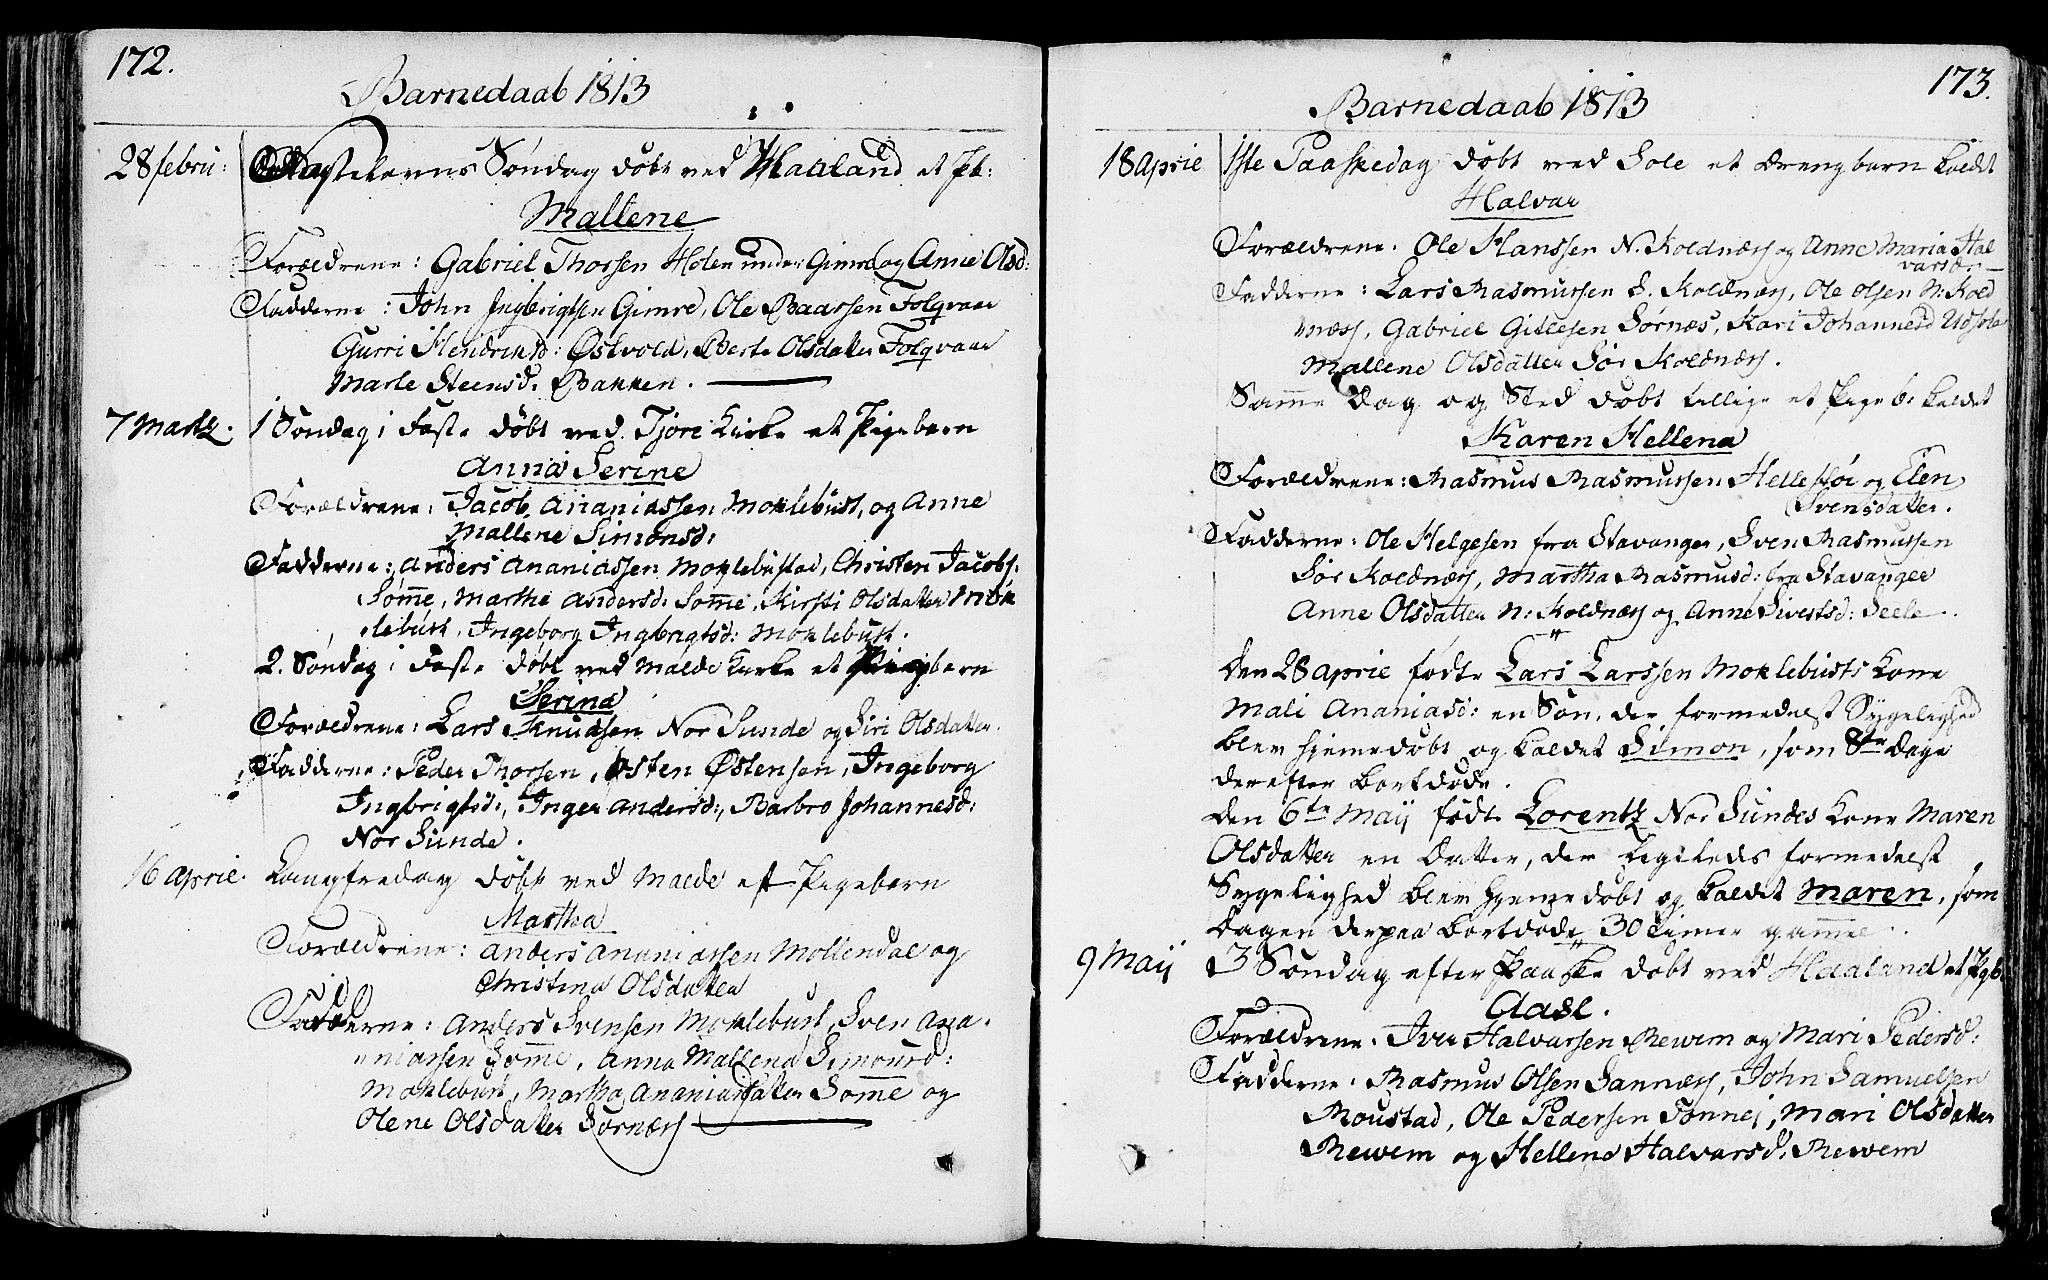 172.
Barnedaab 1813
28 febru: Fastelavns Søndag døbt ved Haaland et Pb:
Mallene
Forældrene: Gabriel Thorsen Holen under Gimre og Anne Olsd:
Fadderne: John Ingbrigtsen Gimre, Ole Baarsen Folqvaar
Gurri Hendrichsd: Østvold, Berte Olsdatter Folqvaar
Marte Steensd: Bakken.
7 Martz. 1 Søndag i Faste døbt ved Tjore Kirke et Pigebarn
Anna Serine
Forældrene: Jacob Ananiassen Moklebust, og Anne
Mallene Simonsd:
Fadderne: Anders Ananiassen Moklebustad, Christen Jacobs:
Somme, Martha Andersd: Somme, Kirsti Olsdatter Mok
lebust, Ingeborg Ingbrigtsd: Moklebust.
2. Søndag i Faste døbt ved Malde Kirke et Pigebarn
Serina
Forældrene: Lars Knudsen Nor Sunde og Siri Olsdatter.
Fadderne: Peder Thorsen, Østen Østensen, Ingeborg
Ingbrigtsd:, Inger Andersd:, Barbro Johannesd:
Nor Sunde.
16 Aprie. Langfredag døbt ved Malde et Pigebarn
Martha
Forældrene: Anders Ananiassen Mollendal og
Christina Olsdatter
Fadderne: Anders Svensen Moklebust, Sven Ana
niassen Somme, Anna Mallena Simonsd:
Moklebust, Martha Ananiasdatter Somme og
Olene Olsdatter Sørnæss
173.
Barnedaab 1813
18 Aprie 1ste Paaskedag døbt ved Sole et Drengbarn kaldt
Halvar
Forældrene: Ole Hanssen N. Koldnæss og Anne Maria Hal
varsd
Fadderne: Lars Rasmussen S. Koldnæss, Ole Olsen N: Kold
næss, Gabriel Gitlesen Sørnæs, Kari Johannesd Udsole
Mallene Olsdatter Sør Koldnæss.
Samme Dag og Sted døbt tillige et Pigeb: kaldet
Karen Hellena
Forældrene: Rasmus Rasmussen Hellestøi og Elen
Svensdatter.
Fadderne: Ole Helgesen fra Stavanger, Sven Rasmussen
Sør Koldnæss, Martha Rasmusd: fra Stavanger
Anne Olsdatter N: Koldnæss og Anne Sivertsd: Seele.
Den 28 Aprie fødte Lars Larssen Moklebusts Kone
Mali Ananiasd: en Søn, der formedelst Sygelighed
blev hjemedøbt og kaldet Simon, som 8te Dage
derefter bortdøde.
Den 6te Maij fødte Lorentz Nor Sundes Kone Maren
Olsdatter en Datter, der ligeleds formedelst
Sygelighed blev hjemedøbt og kaldet Maren, som
Dagen derpaa bortdøde, 30 Timer gammel.
9 Maij 3 Søndag efter Paaske døbt ved Haaland et Pgb.
Aase.
Forældrene: Iver Halvarsen Rewem og Mari Pedersd:
Fadderne: Rasmus Olsen Sannæss, John Samuelsen
Roustad, Ole Pedersen Tonnej, Mari Olsdatter
Rewem og Hellene Halvarsd: Rewem